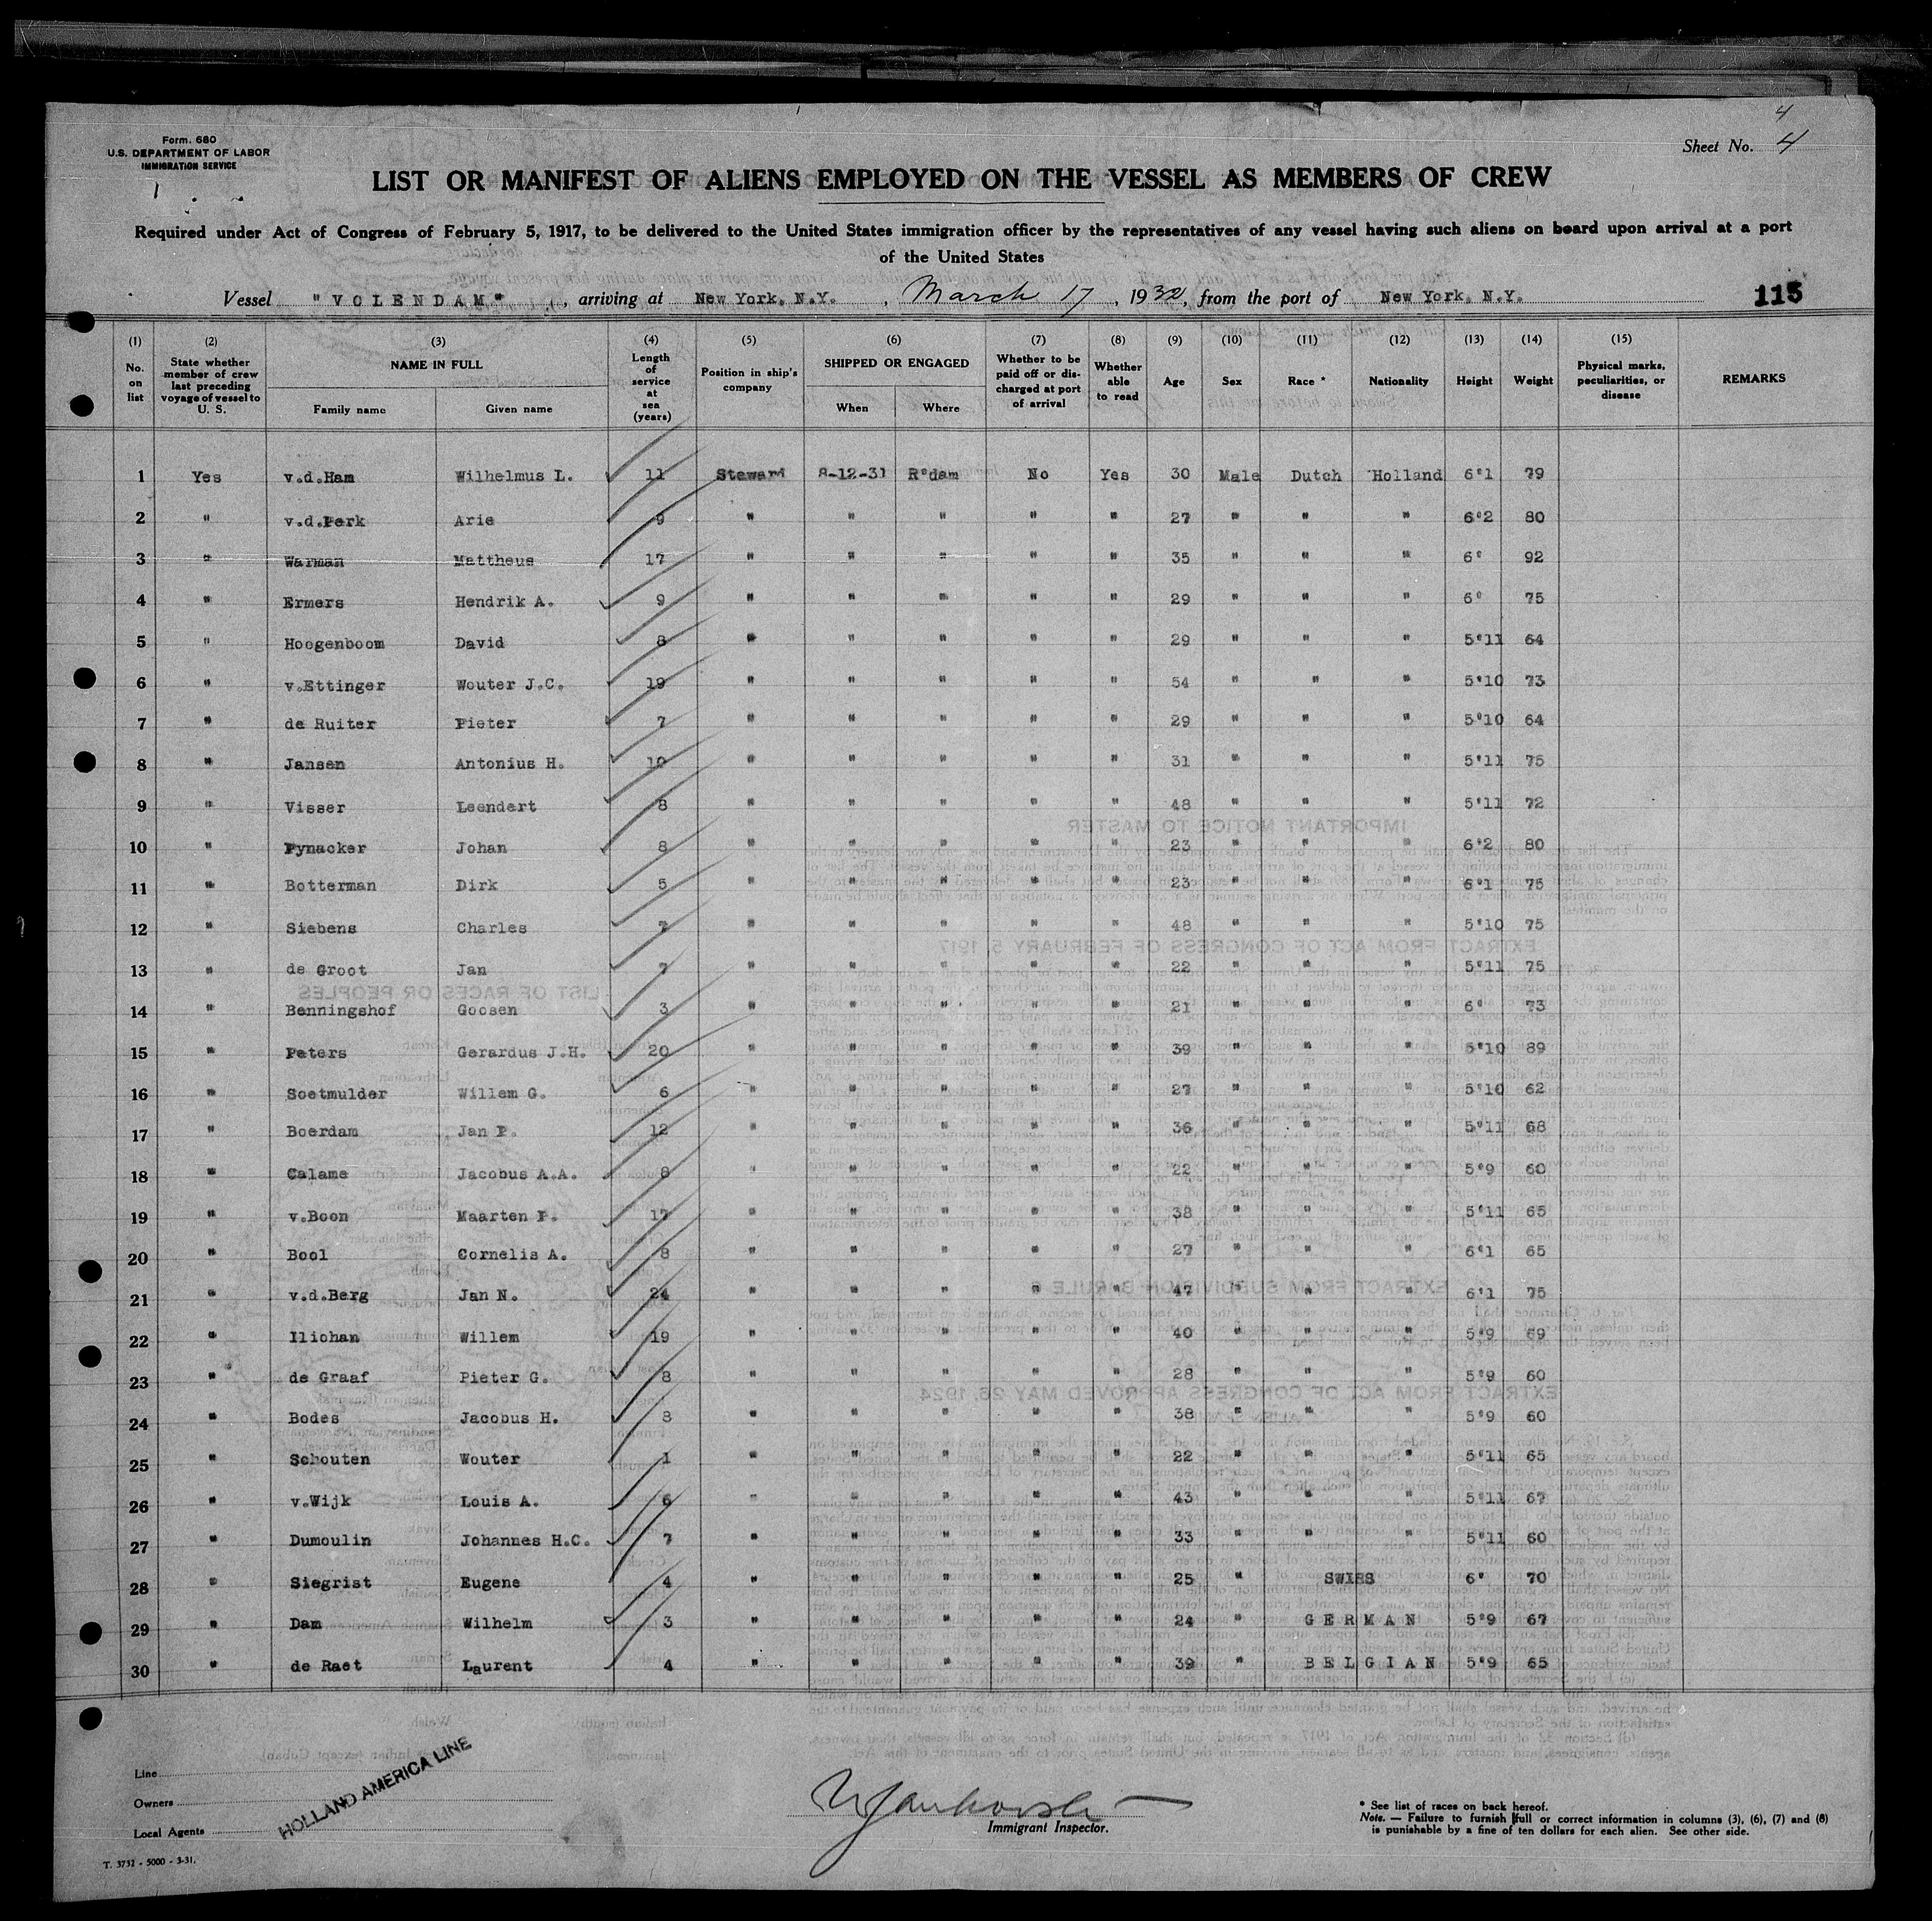 4
Form. 680
U.S. DEPARTMENT OF LABOR
IMMIGRATION SERVICE
Sheet No. 4
LIST OR MANIFEST OF ALIENS EMPLOYED ON THE VESSEL AS MEMBERS OF CREW
Required under Act of Congress of February 5, 1917, to be delivered to the United States immigration officer by the representatives of any vessel having such aliens on board upon arrival at a port
of the United States
Vessel "VOLENDAM", arriving at New York, N.Y., March 17, 1932, from the port of New York, N.Y. 115
(1) No. on list (2) State whether member of crew last preceding voyage of vessel to U. S. (3) NAME IN FULL Family name Given name (4) Length of service at sea (years) (5) Position in ship's company (6) SHIPPED OR ENGAGED When Where (7) Whether to be paid off or discharged at port of arrival (8) Whether able to read (9) Age (10) Sex (11) Race * (12) Nationality (13) Height (14) Weight (15) Physical marks, peculiarities, or disease REMARKS
1 Yes v.d.Ham Wilhelmus L. 11 Steward 8-12-31 R'dam No Yes 30 Male Dutch Holland 6'1 79
2 " v.d.Perk Arie 9 " " " " " 27 " " " 6'2 80
3 " Warman Mattheus 17 " " " " " 35 " " " 6' 92
4 " Ermers Hendrik A. 9 " " " " " 29 " " " 6' 75
5 " Hoogenboom David 8 " " " " " 29 " " " 5'11 64
6 " v.Ettinger Wouter J.C. 19 " " " " " 54 " " " 5'10 73
7 " de Ruiter Pieter 7 " " " " " 29 " " " 5'10 64
8 " Jansen Antonius H. 10 " " " " " 31 " " " 5'11 75
9 " Visser Leendert 8 " " " " " 48 " " " 5'11 72
10 " Pynacker Johan 8 " " " " " 23 " " " 6'2 80
11 " Botterman Dirk 5 " " " " " 23 " " " 6'1 75
12 " Siebens Charles 7 " " " " " 48 " " " 5'10 75
13 " de Groot Jan 7 " " " " " 22 " " " 5'11 75
14 " Benningshof Goosen 3 " " " " " 21 " " " 6' 73
15 " Peters Gerardus J.H. 20 " " " " " 39 " " " 5'10 89
16 " Soetmulder Willem G. 6 " " " " " 27 " " " 5'10 62
17 " Boerdam Jan P. 12 " " " " " 36 " " " 5'11 68
18 " Calame Jacobus A.A. 8 " " " " " 22 " " " 5'9 60
19 " v.Boon Maarten P. 17 " " " " " 38 " " " 5'11 65
20 " Bool Cornelis A. 8 " " " " " 27 " " " 6'1 65
21 " v.d.Berg Jan N. 24 " " " " " 47 " " " 6'1 75
22 " Iliohan Willem 19 " " " " " 40 " " " 5'9 69
23 " de Graaf Pieter G. 8 " " " " " 28 " " " 5'9 60
24 " Bodes Jacobus H. 8 " " " " " 38 " " " 5'9 60
25 " Schouten Wouter 1 " " " " " 22 " " " 5'11 65
26 " v.Wijk Louis A. 6 " " " " " 43 " " " 5'11 67
27 " Dumoulin Johannes H.C. 7 " " " " " 33 " " " 5'11 60
28 " Siegrist Eugene 4 " " " " " 25 " SWISS 6' 70
29 " Dam Wilhelm 3 " " " " " 24 " GERMAN 5'9 67
30 " de Raet Laurent 4 " " " " " 39 " BELGIAN 5'9 65
Line
Owners
Local Agents
HOLLAND AMERICA LINE
Immigrant Inspector.
* See list of races on back hereof.
Note. — Failure to furnish full or correct information in columns (3), (6), (7) and (8)
is punishable by a fine of ten dollars for each alien. See other side.
T. 3732 - 5000 - 3-31.